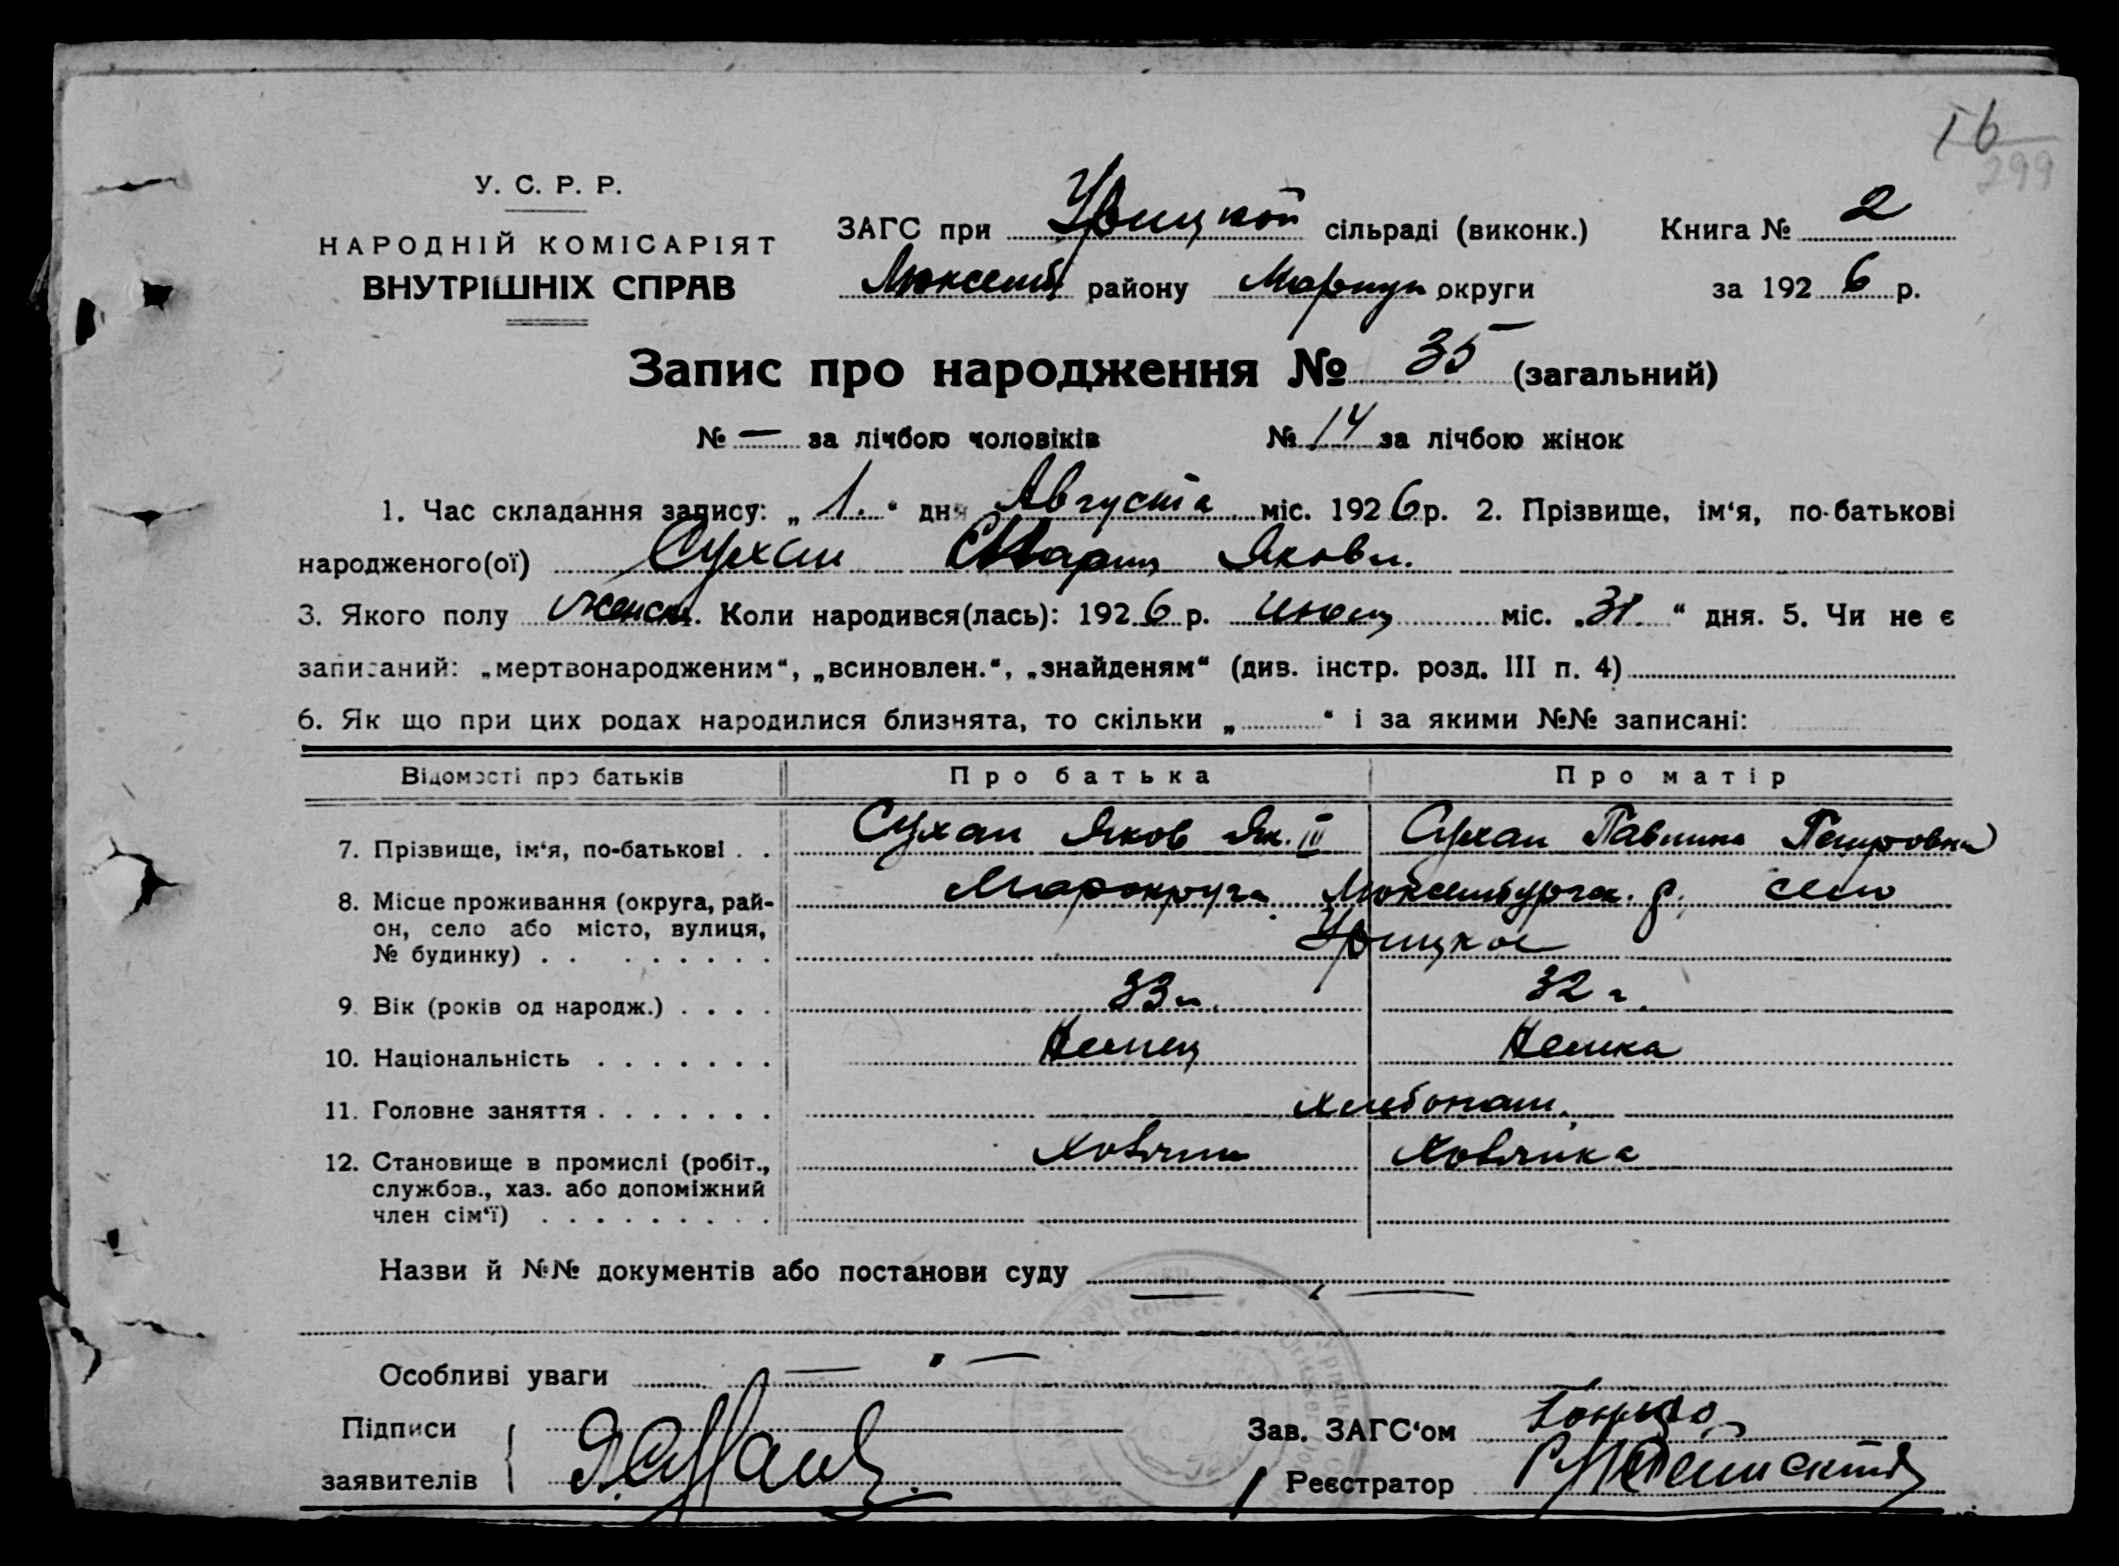 16
299
У. С. Р. Р.
НАРОДНІЙ КОМІСАРІЯТ
ВНУТРІШНІХ СПРАВ
ЗАГС при Урицкой сільраді (виконк.) Книга № 2
Люксемб району Мариуп округи за 1926 р.
Запис про народження № 35 (загальний)
№ — за лічбою чоловіків № 14 за лічбою жінок
1. Час складання запису: „ 1. “ дня Августа міс. 1926 р. 2. Прізвище, ім‘я, по-батькові
народженого(ої) Сухан Мария Яковл.
3. Якого полу женск. Коли народився(лась): 1926 р. міс. „31.“ дня. 5. Чи не є
записаний: „мертвонародженим“, „всиновлен.“, „знайденям“ (див. інстр. розд. III п. 4)
6. Як що при цих родах народилися близнята, то скільки „ “ і за якими №№ записані:
Відомості про батьків Про батька Про матір
7. Прізвище, ім‘я, по-батькові . . Сухан Яков Як. III Сухан Павлина Петровна
8. Місце проживання (округа, рай- Марокруга Люксембургск. р. село
он, село або місто, вулиця, Урицкое
№ будинку) . . . . . . . .
9. Вік (років од народж.) . . . . 33 г. 32 г.
10. Національність . . . . . . . Немец Немка
11. Головне заняття . . . . . . . хлебопаш.
12. Становище в промислі (робіт.,
службов., хаз. або допоміжний
член сім‘ї) . . . . . . . . .
Назви й №№ документів або постанови суду — „ —
Особливі уваги — „ —
Підписи Зав. ЗАГС‘ом
заявителів Реєстратор